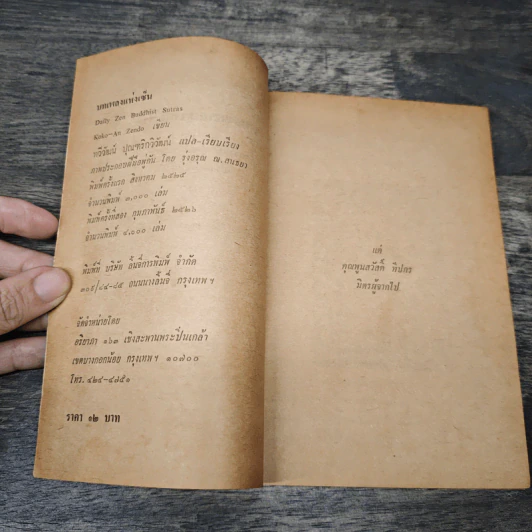 บทเพลงแห่งเซ็น
Daily Zen Buddhist Sutras
Koko-An Zendo เขียน
ทวีวัฒน์ ปุณฑริกวิวัฒน์ แปล-เรียบเรียง
ภาพประกอบฝีมือพู่กัน โดย รุ่งอรุณ ณ.สนธยา
พิมพ์ครั้งแรก สิงหาคม ๒๕๒๕
จำนวนพิมพ์ ๓,๐๐๐ เล่ม
พิมพ์ครั้งที่สอง กุมภาพันธ์ ๒๕๒๖
จำนวนพิมพ์ ๔,๐๐๐ เล่ม
พิมพ์ที่ บริษัท ลิ้นจี่การพิมพ์ จำกัด
๓๐๙/๔๔-๔๕ ถนนนางลิ้นจี่ กรุงเทพฯ
จัดจำหน่ายโดย
อริยาภา ๑๖๓ เชิงสะพานพระปิ่นเกล้า
เขตบางกอกน้อย กรุงเทพฯ ๑๐๗๐๐
โทร. ๔๒๔-๔๘๕๑
ราคา ๑๒ บาท
แด่
คุณพูนสวัสดิ์ ทิปกร
มิตรผู้จากไป